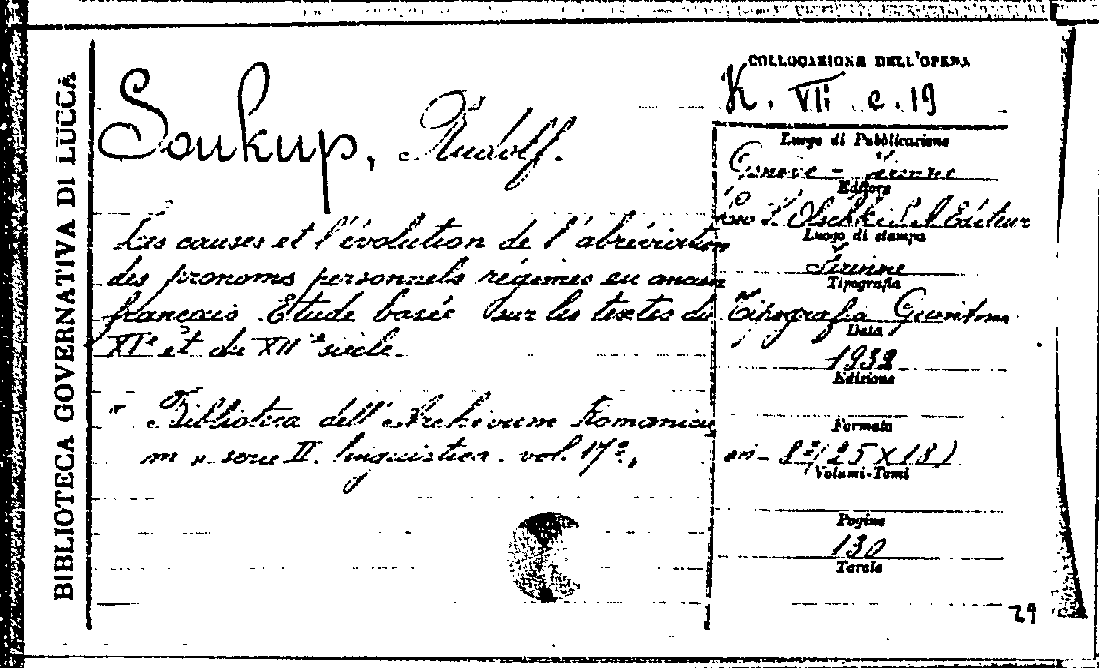 BIBLIOTECA GOVERNATIVA DI LUCCA
Soukup, Rudolf.
Les causes et l'évolution de l'abréviation
des pronoms personnels régimes en ancien
français. Etude basée sur les textes du
XIe et du XIIe siècle.
" Biblioteca dell'Archivum Romanicu
m " serie II. linguistica. vol. 17º,
COLLOCAZIONE DELL'OPERA
K. VII. c. 19
Luogo di Pubblicazione
Genève - Firenne
Editore
Leo S. Olschki S. A Editeur
Luogo di stampa
Firenne
Tipografia
Tipografia Giuntina
Data
1932
Edizione
Formato
in-8º (25 X 18)
Volumi-Tomi
Pagine
130
Tavole
29